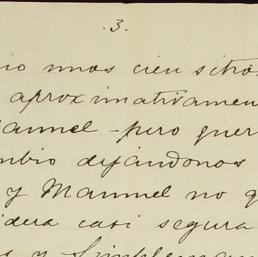 .3.
io unos cien sitio
aproximativamen
Manuel - pero quer
mbio dejándonos
y Manuel no q
idera casi segura
s y simpleman